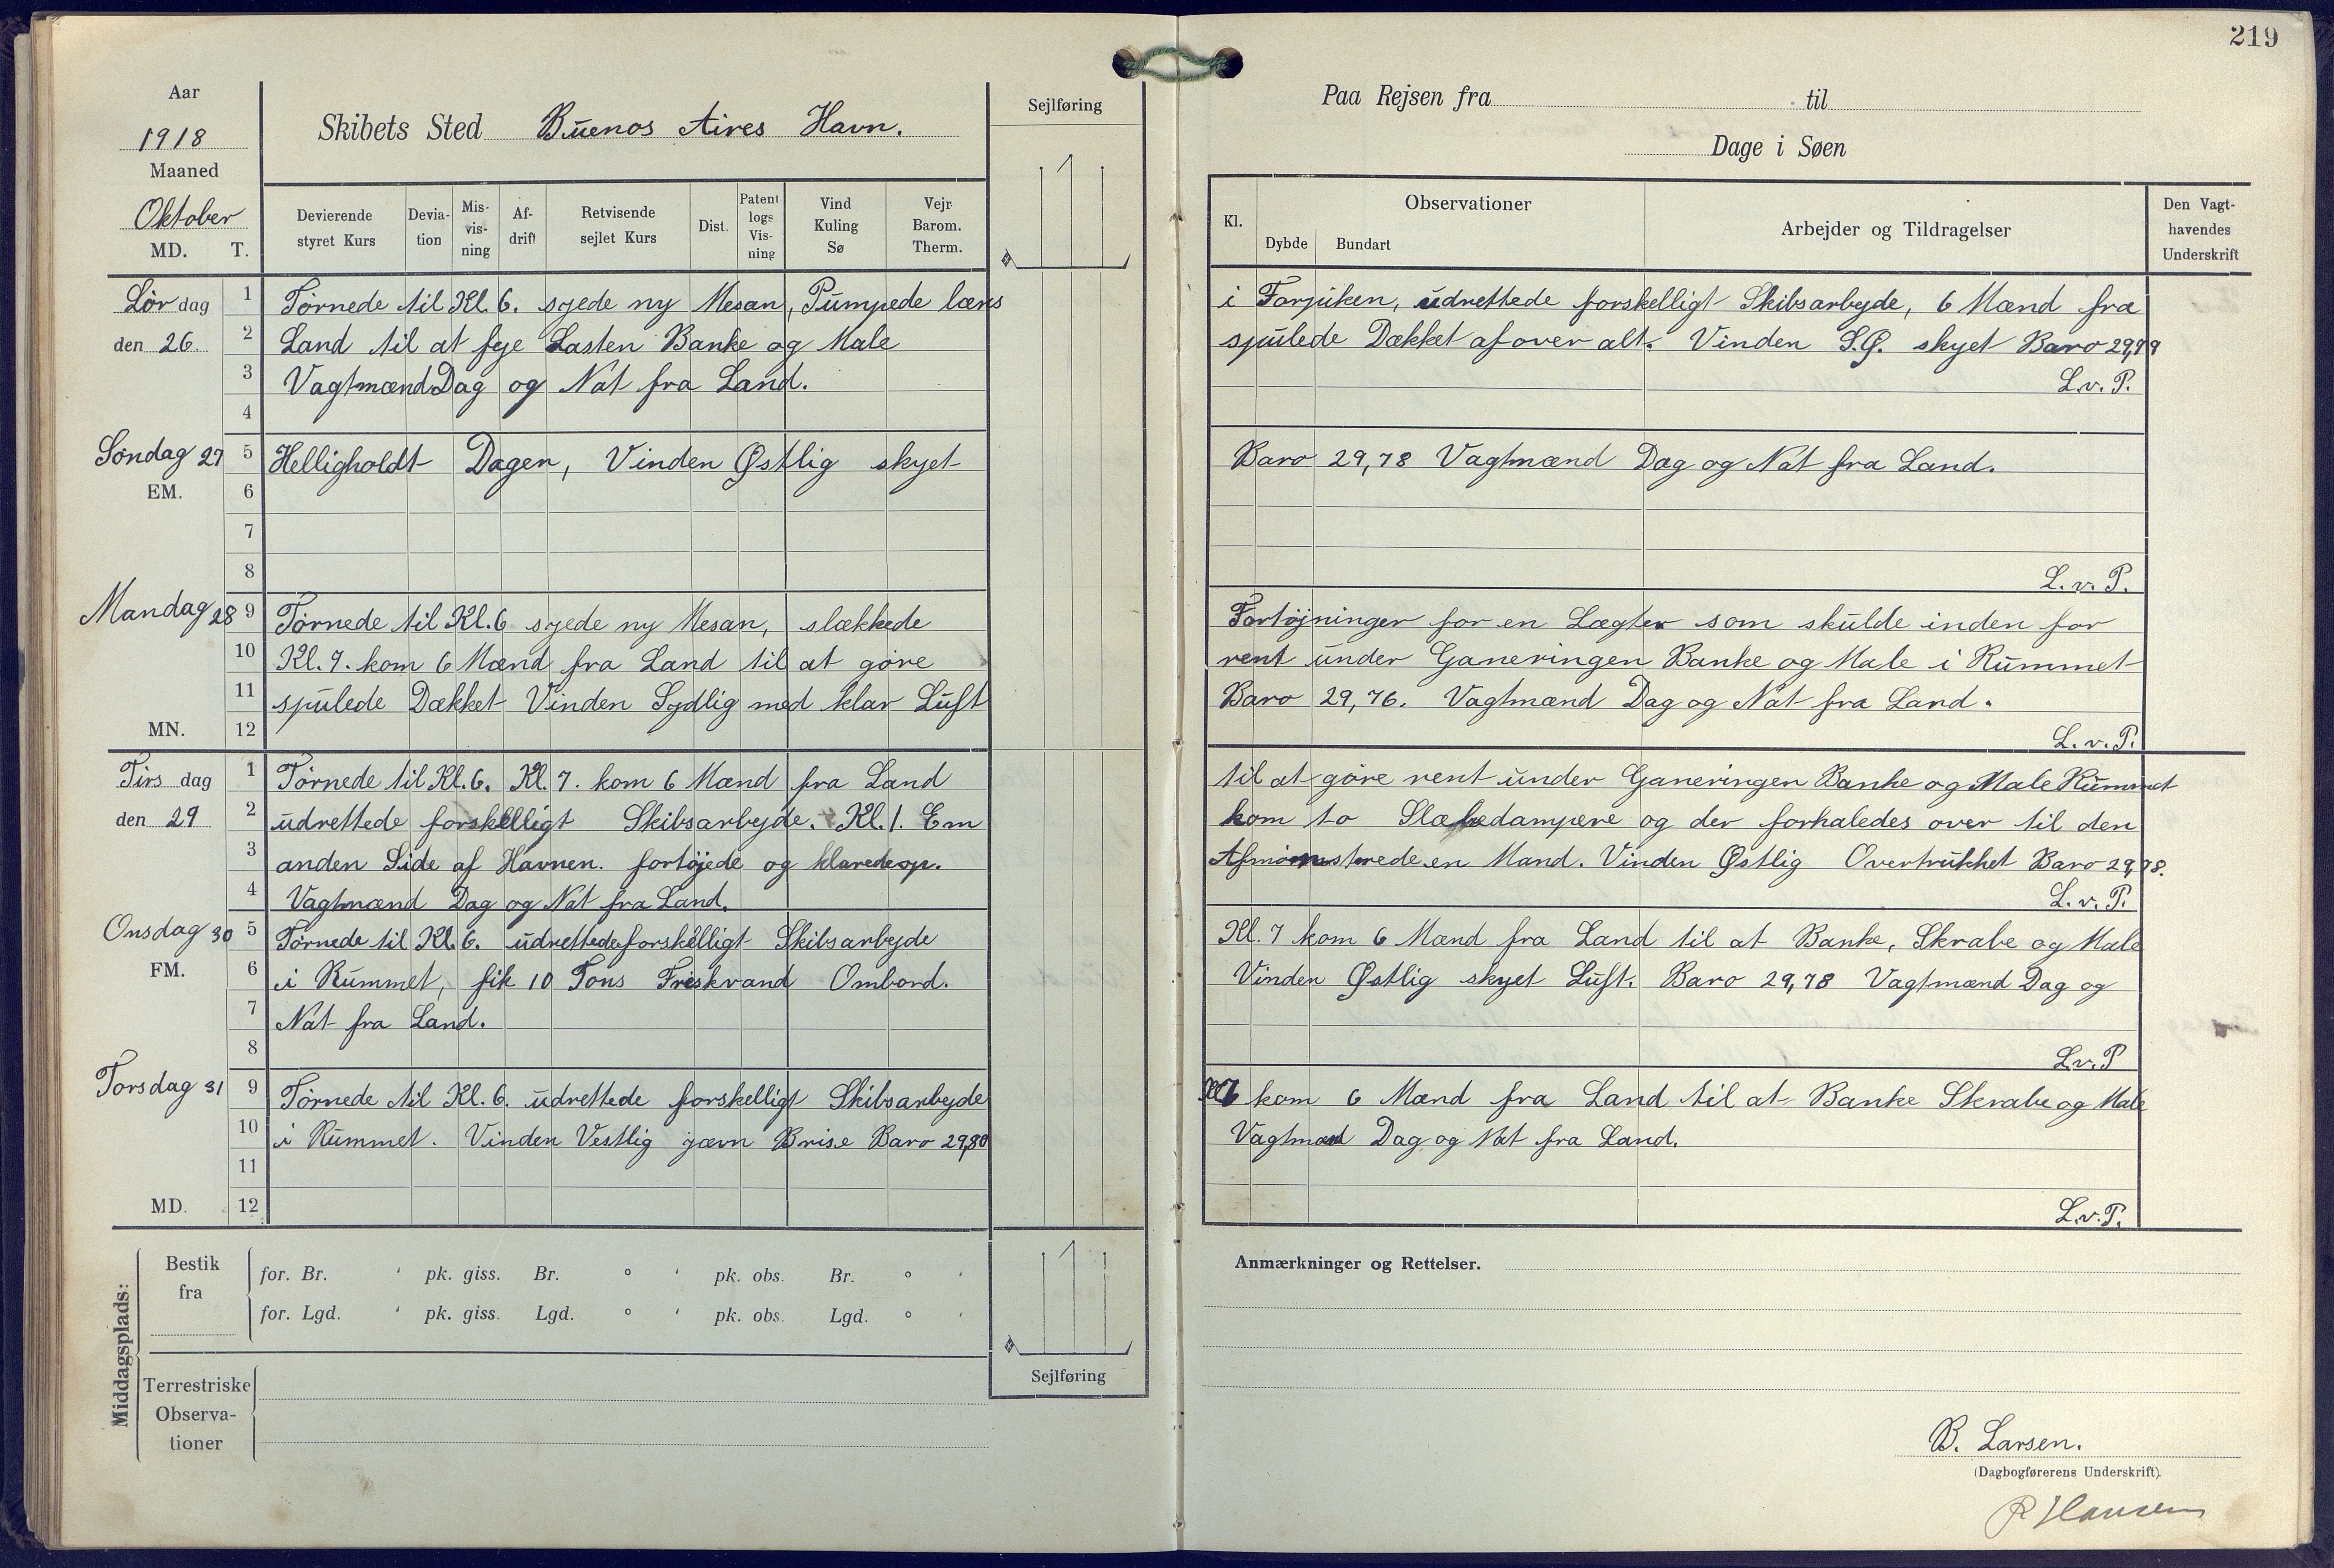 219
Aar
1918
Maaned
Oktober
MD. T.
Skibets Sted Buenos Aires Havn.
Sejlføring
Devierende styret Kurs
Devia-tion
Mis-vis-ning
Af-drift
Retvisende sejlet Kurs
Dist.
Patent logs Vis-ning
Vind Kuling Sø
Vejr Barom. Therm.
Lørdag 1 Tørnede til Kl. 6. syede ny Mesan, Pumpede læns
den 26. 2 Land til at feje Lasten Banke og Male
3 Vagtmænd Dag og Nat fra Land.
4
Søndag 27 5 Helligholdt Dagen, Vinden Østlig skyet
EM. 6
7
8
Mandag 28 9 Tørnede til Kl. 6 syede ny Mesan, slækkede
10 Kl. 7. kom 6 Mænd fra Land til at gøre
11 spulede Dækket Vinden Sydlig med klar Luft
MN. 12
Tirsdag 1 Tørnede til Kl. 6. Kl. 7. kom 6 Mænd fra Land
den 29 2 udrettede forskelligt Skibsarbejde. Kl. 1. Em
3 anden Side af Havnen. fortøjede og klarede op.
4 Vagtmænd Dag og Nat fra Land.
Onsdag 30 5 Tørnede til Kl. 6. udrettede forskelligt Skibsarbejde
FM. 6 i Rummet, fik 10 Tons Friskvand Ombord.
7 Nat fra Land.
8
Torsdag 31 9 Tørnede til Kl. 6. udrettede forskelligt Skibsarbejde
10 i Rummet. Vinden Vestlig jævn Brise Baro 29,80
11
MD. 12
Middagsplads:
Bestik fra
for. Br. ' pk. giss. Br. ° ' pk. obs. Br. ° '
for. Lgd. ' pk. giss. Lgd. ° ' pk. obs. Lgd. ° '
Sejlføring
Terrestriske Observa-tioner
Paa Rejsen fra til
Dage i Søen
Kl.
Observationer
Dybde Bundart
Arbejder og Tildragelser
Den Vagt-havendes Underskrift
i Forpiken, udrettede forskelligt Skibsarbejde, 6 Mænd fra
spulede Dækket af over alt. Vinden S.Ø. skyet Baro 29,79
L.v.P.
Baro 29,78 Vagtmænd Dag og Nat fra Land.
L.v.P.
Fortøjninger for en Lægter som skulde inden for
rent under Ganeringen Banke og Male i Rummet
Baro 29,76. Vagtmænd Dag og Nat fra Land.
L.v.P.
til at gøre rent under Ganeringen Banke og Male Rummet
kom to Slæbedampere og der forhaledes over til den
Afmønstrede en Mand. Vinden Østlig Overtrukket Baro 29,78.
L.v.P.
Kl. 7 kom 6 Mænd fra Land til at Banke, Skrabe og Male
Vinden Østlig skyet Luft. Baro 29,78 Vagtmænd Dag og
L.v.P
Kl 7 kom 6 Mænd fra Land til at Banke Skrabe og Male
Vagtmænd Dag og Nat fra Land.
L.v.P.
Anmærkninger og Rettelser.
B. Larsen.
(Dagbogførerens Underskrift).
R Hansen